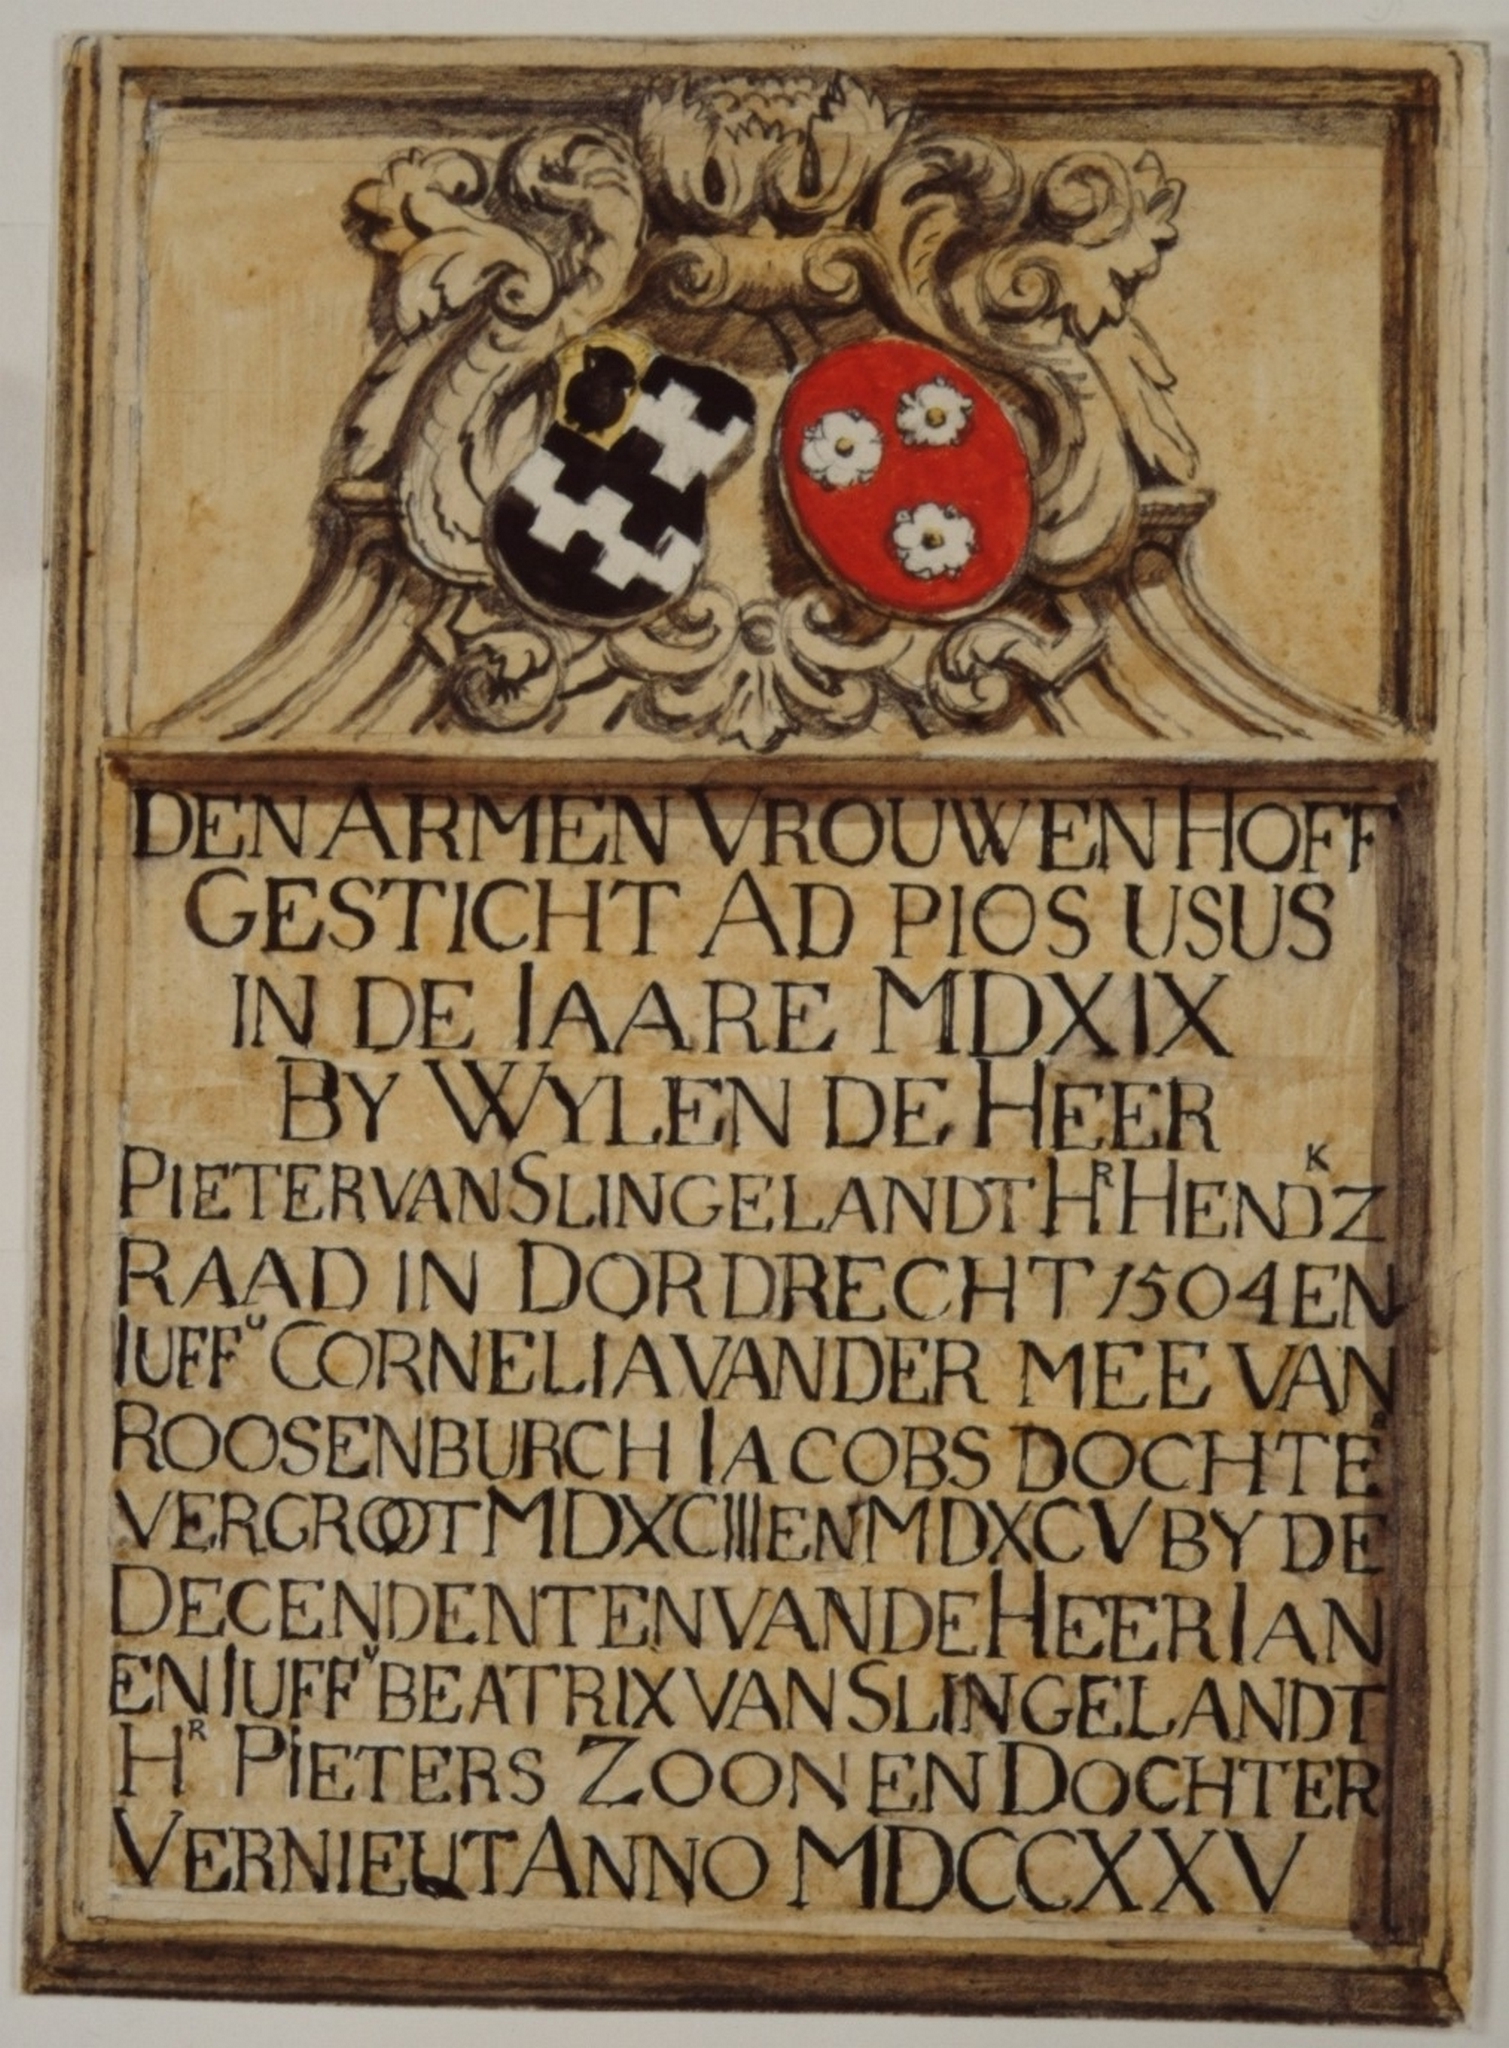 DEN ARMEN VROUWEN HOFF
GESTICHT AD PIOS USUS
IN DE IAARE MDXIX
BY WYLEN DE HEER
PIETER VAN SLINGELANDT Hᴿ HENDᴷZ
RAAD IN DORDRECHT 1504 EN
IUFFᵁ CORNELIA VANDER MEE VAN
ROOSENBURCH IACOBS DOCHTEᴿ
VERGROOT MDXCIII EN MDXCV BY DE
DECENDENTEN VAN DE HEER IAN
EN IUFFᵛ BEATRIX VAN SLINGELANDT
Hᴿ PIETERS ZOON EN DOCHTER
VERNIEUT ANNO MDCCXXV